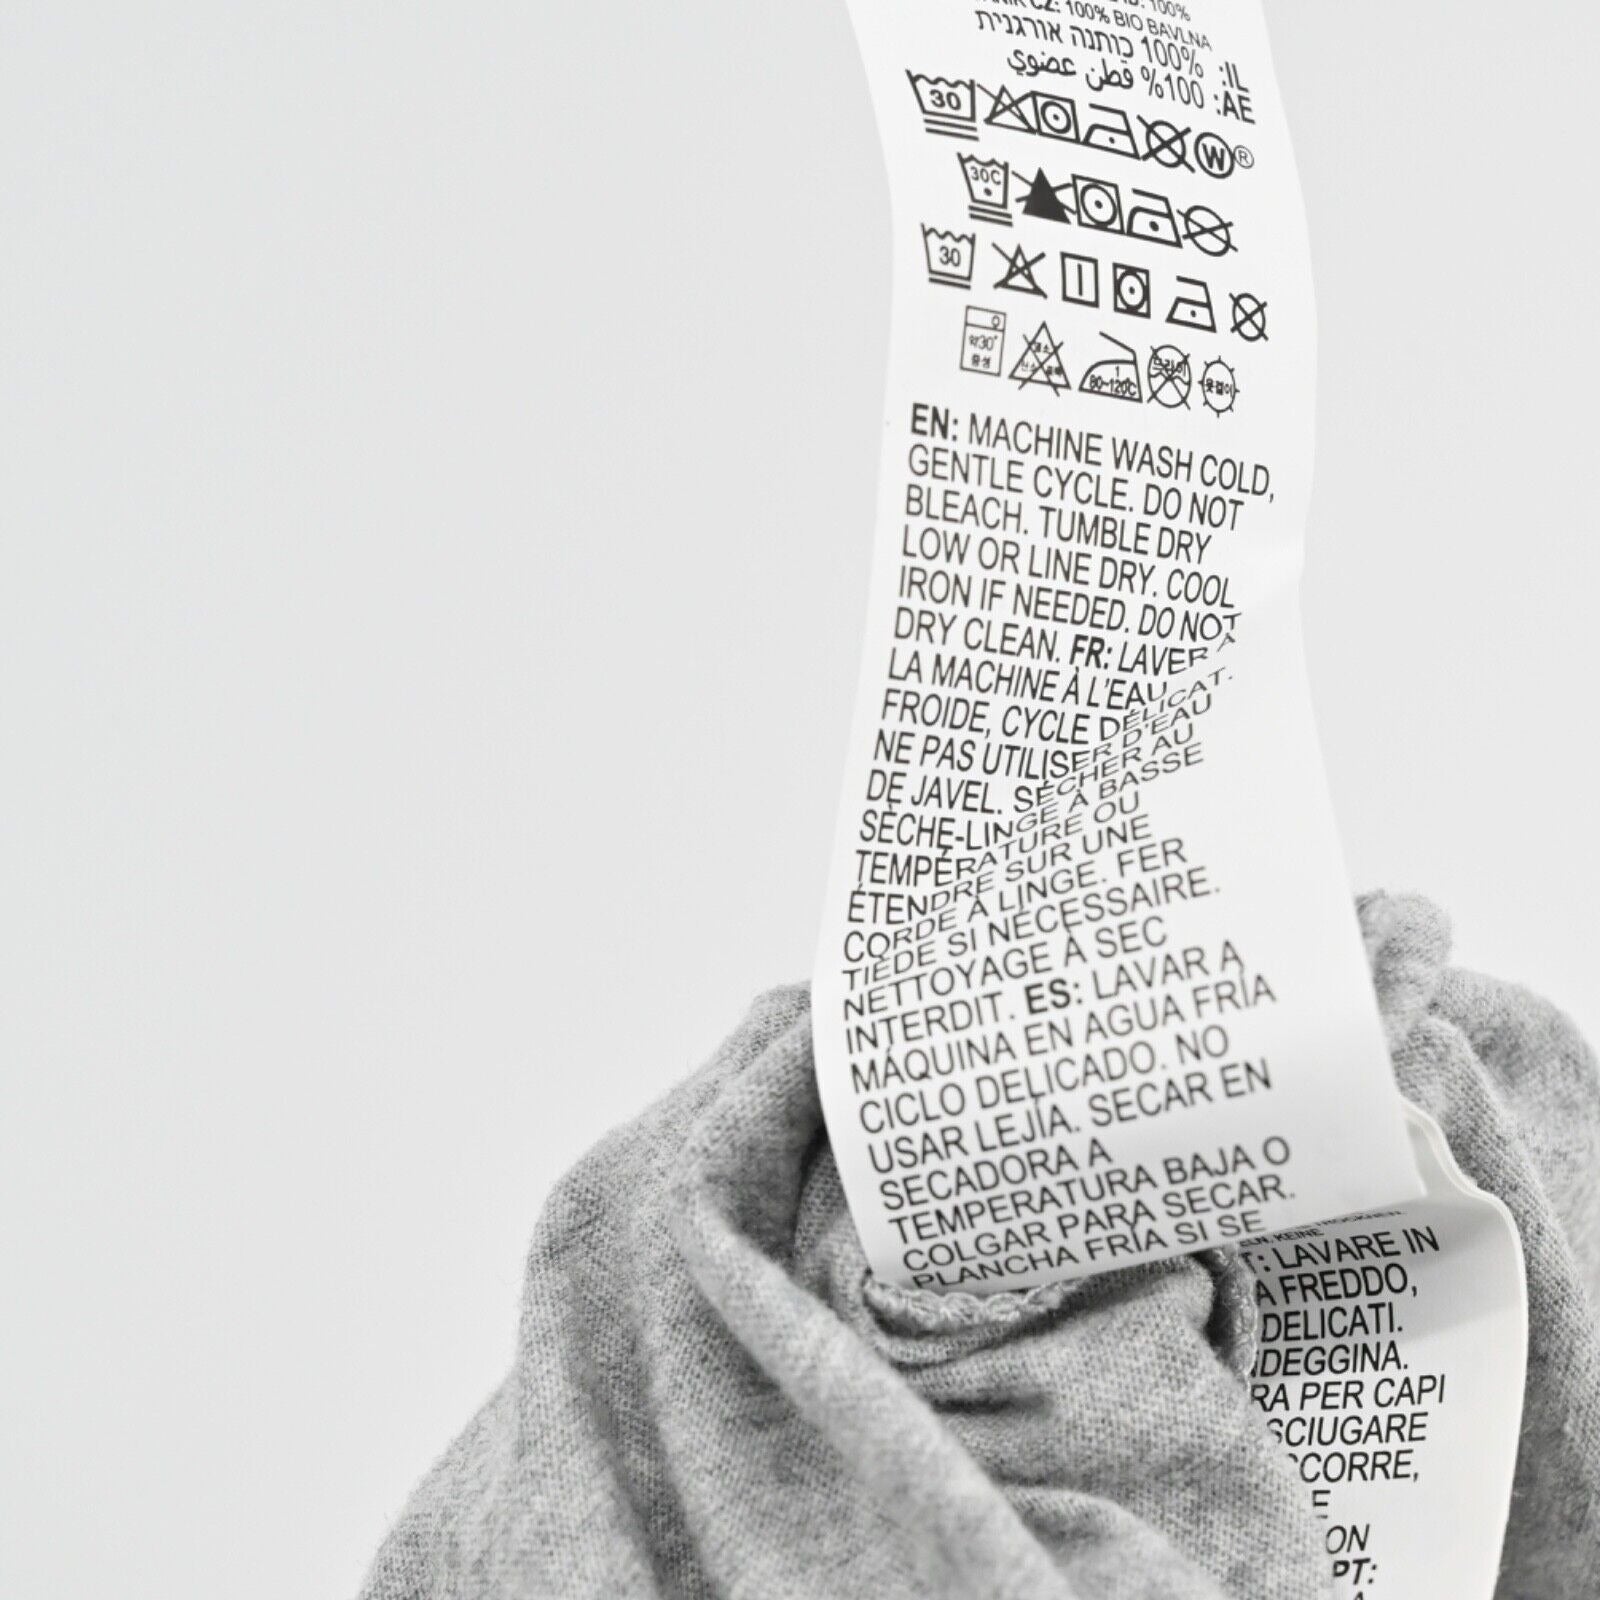 100%
CZ: 100% BIO BAVLNA
IL: 100% כותנה אורגנית
AE: 100% قطن عضوي
30 W®
30C
30
약30° 중성
80~120℃ 드라이 옷걸이
EN: MACHINE WASH COLD,
GENTLE CYCLE. DO NOT
BLEACH. TUMBLE DRY
LOW OR LINE DRY. COOL
IRON IF NEEDED. DO NOT
DRY CLEAN. FR: LAVER À
LA MACHINE À L'EAU
FROIDE, CYCLE DÉLICAT.
NE PAS UTILISER D'EAU
DE JAVEL. SÉCHER AU
SÈCHE-LINGE À BASSE
TEMPÉRATURE OU
ÉTENDRE SUR UNE
CORDE À LINGE. FER
TIÈDE SI NÉCESSAIRE.
NETTOYAGE À SEC
INTERDIT. ES: LAVAR A
MÁQUINA EN AGUA FRÍA
CICLO DELICADO. NO
USAR LEJÍA. SECAR EN
SECADORA A
TEMPERATURA BAJA O
COLGAR PARA SECAR.
PLANCHA FRÍA SI SE
KEINE
LAVARE IN
A FREDDO,
DELICATI.
PER CAPI